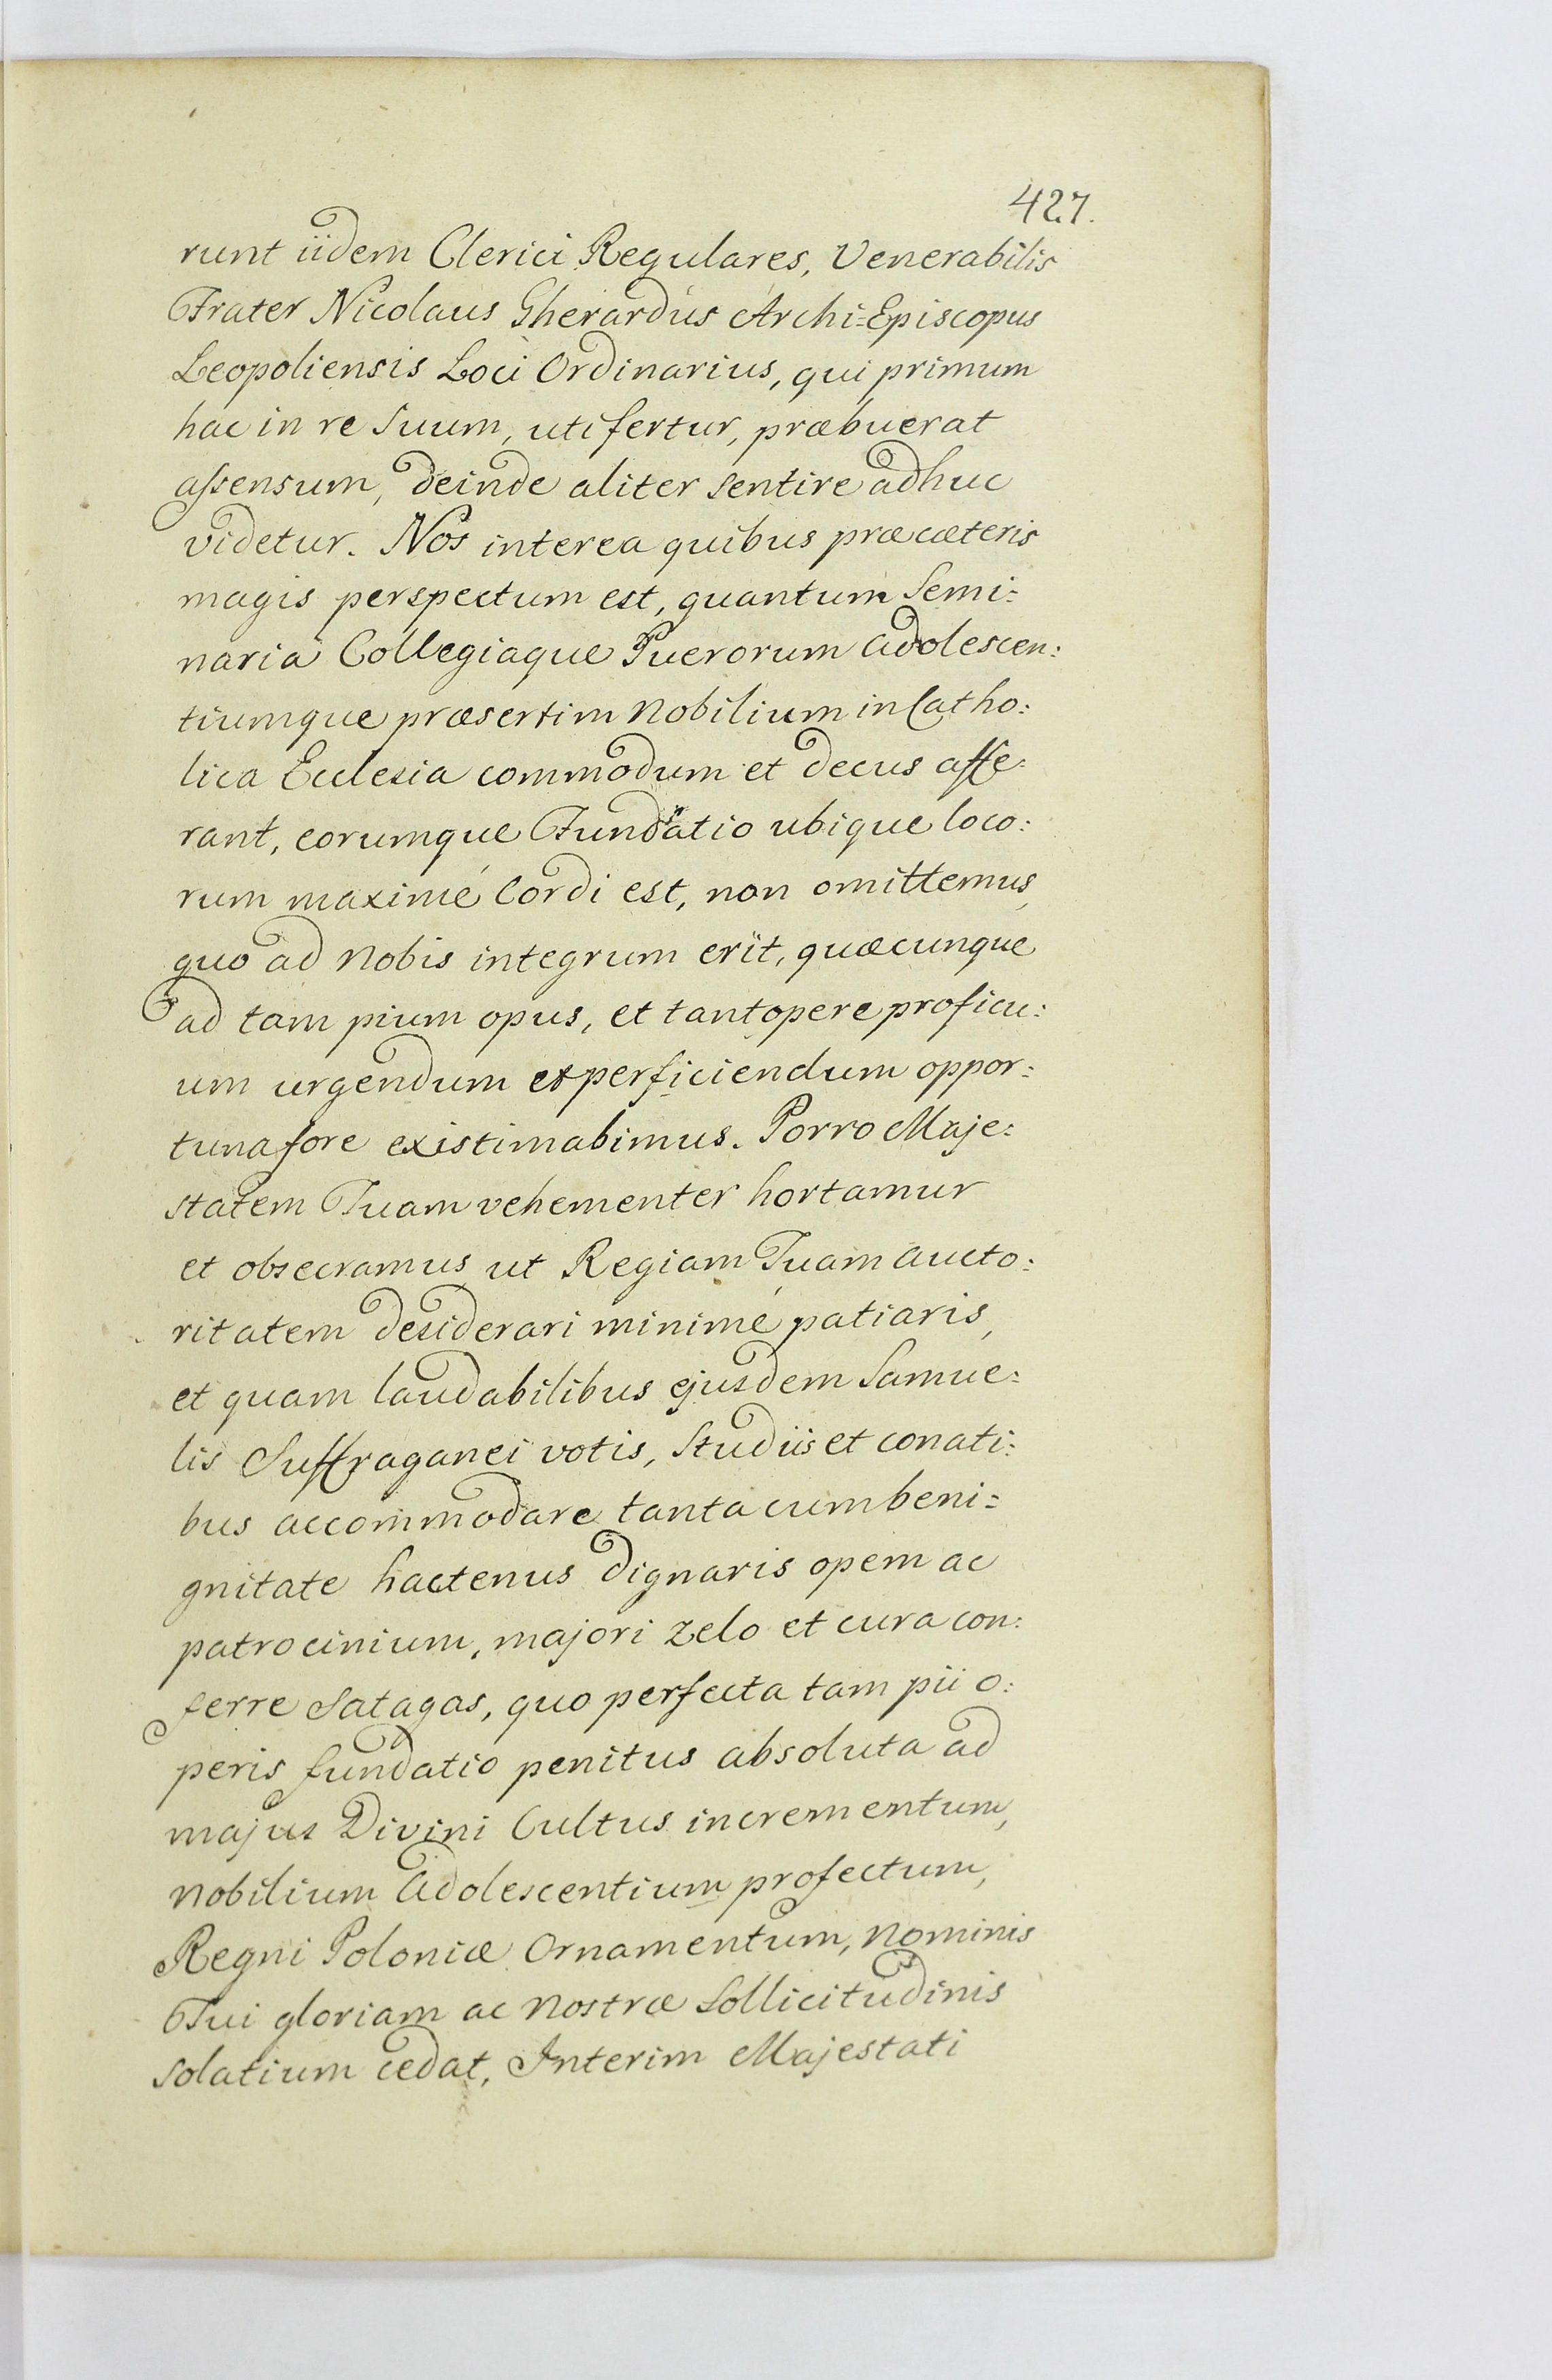 427.
runt iidem Clerici Regulares, Venerabilis
Frater Nicolaus Gherardus Archi=Episcopus
Leopoliensis Loci Ordinarius, qui primum
hac in re Suum, uti fertur, præbuerat
assensum, deinde aliter sentire adhuc
videtur. Nos interea quibus præ cæteris
magis perspectum est, quantum Semi:
naria Collegiaque Puerorum adolescen:
tiumque præsertim Nobilium in Catho:
lica Ecclesia commodum et decus affe:
rant, eorumque Fundatio ubique loco:
rum maximé Cordi est, non omittemus,
quo ad Nobis integrum erit, quæcunque
ad tam pium opus, et tantopere proficu:
um urgendum et perficiendum oppor:
tuna fore existimabimus. Porro Maje:
statem Tuam vehementer hortamur
et obsecramus ut Regiam Tuam aucto:
ritatem desiderari minimé patiaris,
et quam laudabilibus ejusdem Samue:
lis Suffraganei votis, Studiis et conati:
bus accommodare tanta cum beni=
gnitate hactenus dignaris opem ac
patrocinium, majori zelo et cura con:
ferre Satagas, quo perfecta tam pii o:
peris fundatio penitus absoluta ad
majus Divini Cultus incrementum,
Nobilium Adolescentium profectum,
Regni Poloniæ Ornamentum, Nominis
Tui gloriam ac Nostræ Sollicitudinis
solatium cedat, Interim Majestati